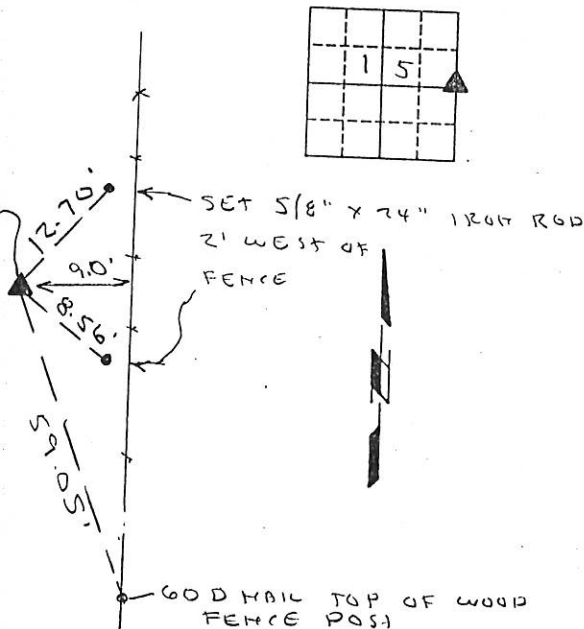 1 5
12.70'
SET 5/8" x 24" IRON ROD
2' WEST OF
FENCE
9.0'
8.56'
59.05'
N
60 D NAIL TOP OF WOOD
FENCE POST